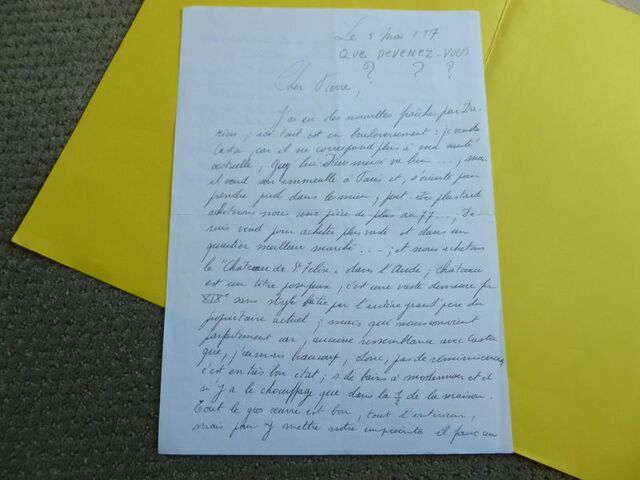 Le 5 Mai 197
QUE DEVENEZ-VOUS
? ? ?
Cher Pierre,
J'ai eu des nouvelles fraîches par Da-
rius, ici tout est en bouleversement : je vends
car il ne correspond plus à ma santé
actuelle, Guy lui Dieu merci va bien ..., mais
il vend son immeuble à Paris et, s'oriente pour
prendre pied dans le mien ; peut-être plus tard
achèterons nous une pièce de plus au 77 ... ; Da-
rius vend pour acheter plus vaste et dans un
quartier meilleur marché .... ; et nous achetons
le "Château de St Felix" dans l'Aude ; château
est un titre pompeux, c'est une vaste demeure fin
XIXe sans style bâtie par l'arrière grand père du
propriétaire actuel ; mais qui nous convient
parfaitement car, aucune ressemblance avec
que, j'aimais beaucoup, donc, pas de réminiscences,
c'est en très bon état ; s. de bains à moderniser et il
n'y a le chauffage que dans la 1/2 de la maison.
Tout le gros œuvre est bon, tout l'intérieur,
mais pour y mettre notre empreinte il faut un